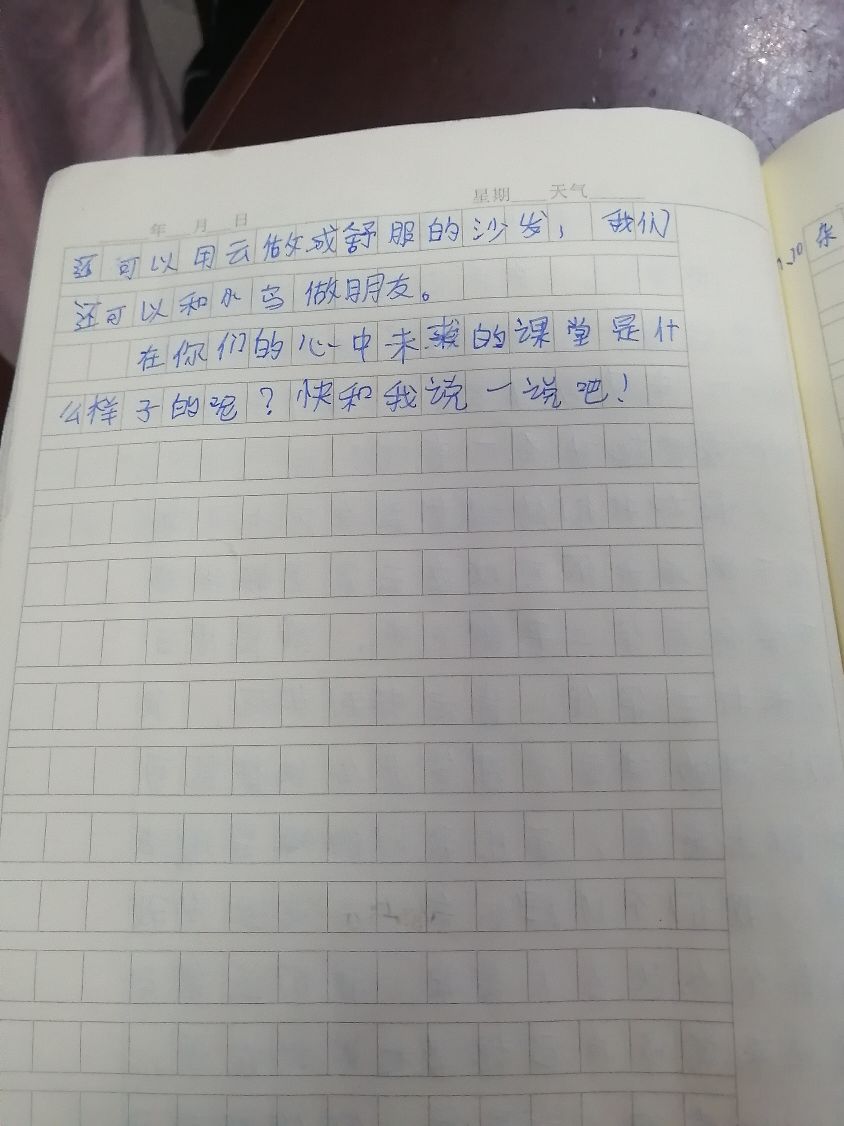 年 月 日 星期 天气
还可以用云做成舒服的沙发，我们
还可以和小鸟做朋友。
在你们的心中未来的课堂是什
么样子的呢？快和我说一说吧！